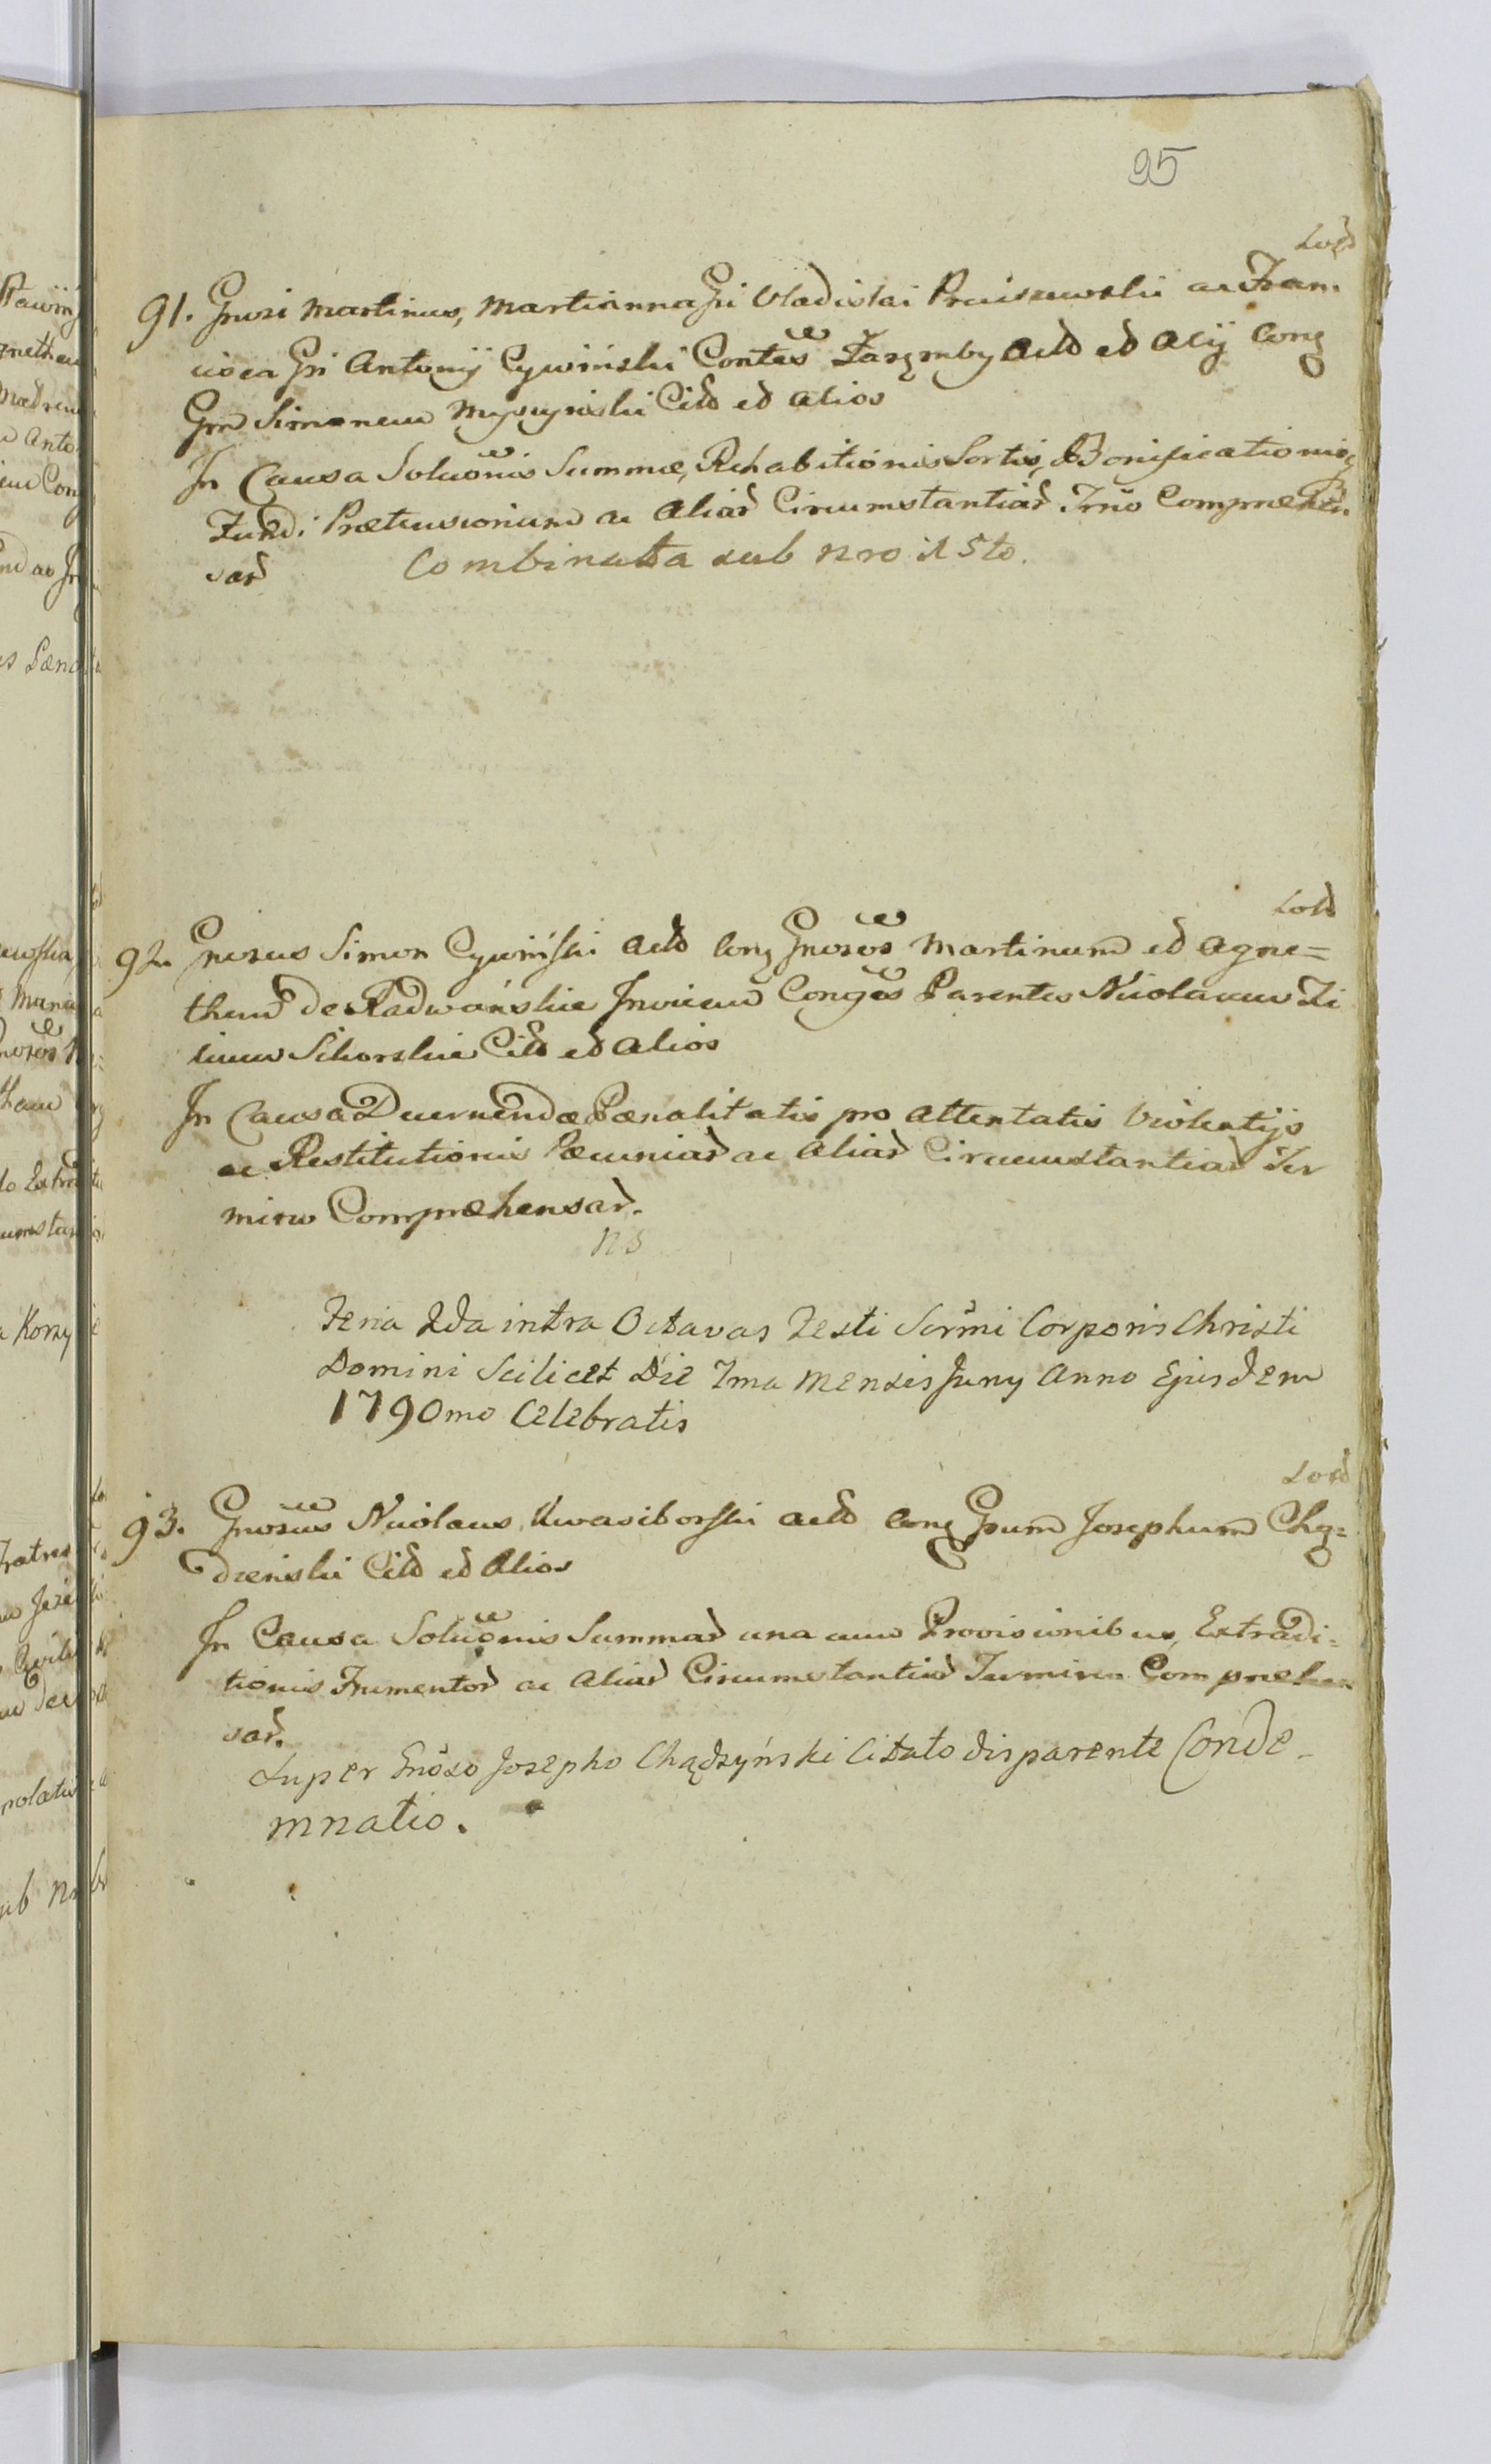 95
91. Gnosi Martinus, Martianna Gsi Vladislai Pruiszewski ac Fran
cisca Gsi Antonij Cywiński Contes Zaremby Actd ed Alij Cong
Gm Simonem Myszyński Citd ed alios
In Causa Soluõnis Summæ, Rehabitionis Sortis, Bonificationis
Fundi Prætensionum ac Aliar Circumstantiar Trno Compræhen
sar Combinatta sub nro 1sto.
92. Gnosus Simon Cywiński Actd Cong Gnosos Martinum ed Agne=
them de Radwańskie Invicem Conges Parentes Nicolaum Fi
lium Sikorskie Citd ed Alios
In Causa Decernendæ Pænalitatis pro attentatis Violentijs
ac Restitutionis Pæcuniar ac Aliar Circumstantiar Ter
mino Compræhensar.
ns
Feria 2da intra Octavas Festi Ssrmi Corporis Christi
Domini Scilicet Die 7ma Mensis Juny Anno Ejusdem
1790mo Celebratis
93. Gnosus Nicolaus Kwasiborski actd Cong Gsum Josephum Chą=
dzenski Citd ed Alios
In Causa Soluõnis Summar una cum Provisionibus, Extradi=
tionis Frumentor ac Aliar Circumstantiar Termino Compræhen
sar.
Super Gnõso Josepho Chądzyński Citato disparente Conde-
mnatio.